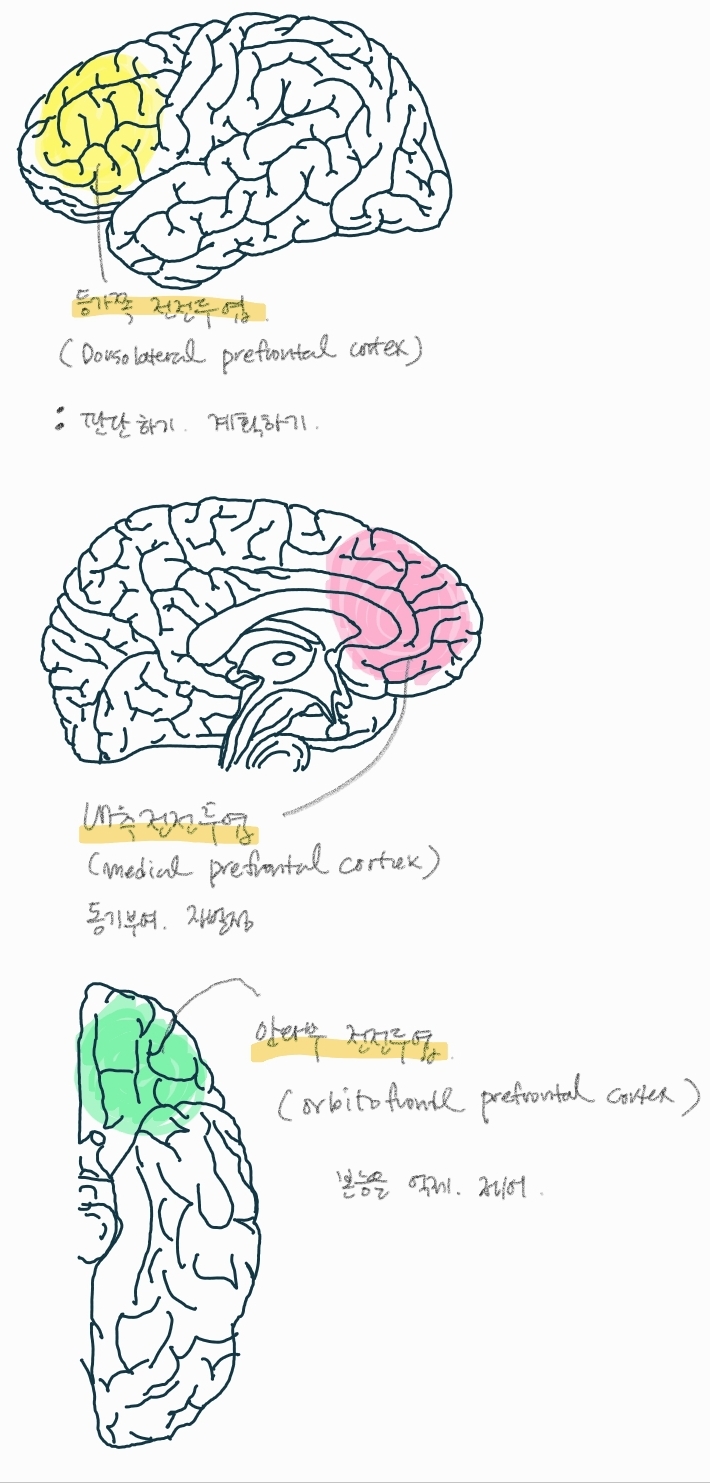 등가쪽 전전두엽.
(Dorsolateral prefrontal cortex)
: 판단하기. 계획하기.
내측전전두엽
(medial prefrontal cortex)
동기부여. 자발성
안와부 전전두엽.
(orbitofrontl prefrontal cortex)
본능을 억제. 제어.